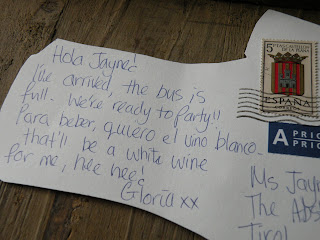 Hola Jayne!
I've arrived, the bus is
full. We're ready to Party!!
Para beber, quiero el vino blanco.
that'll be a white wine
for me, hee hee!
Gloria xx
5
PTAS
ESPAÑA
A PRIO
PRIO
Ms Jay
The Abs
Tirol